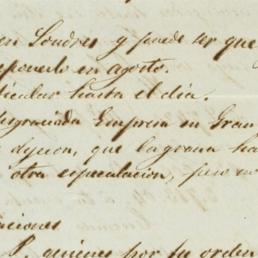 en Londres y puede ser que
sponerlo en agosto.
ticular hasta el día.
sgraciada Empresa en Gran
dijeron, que la grana ha
otra especulacion, pero no
aciones
P. quienes por su orden